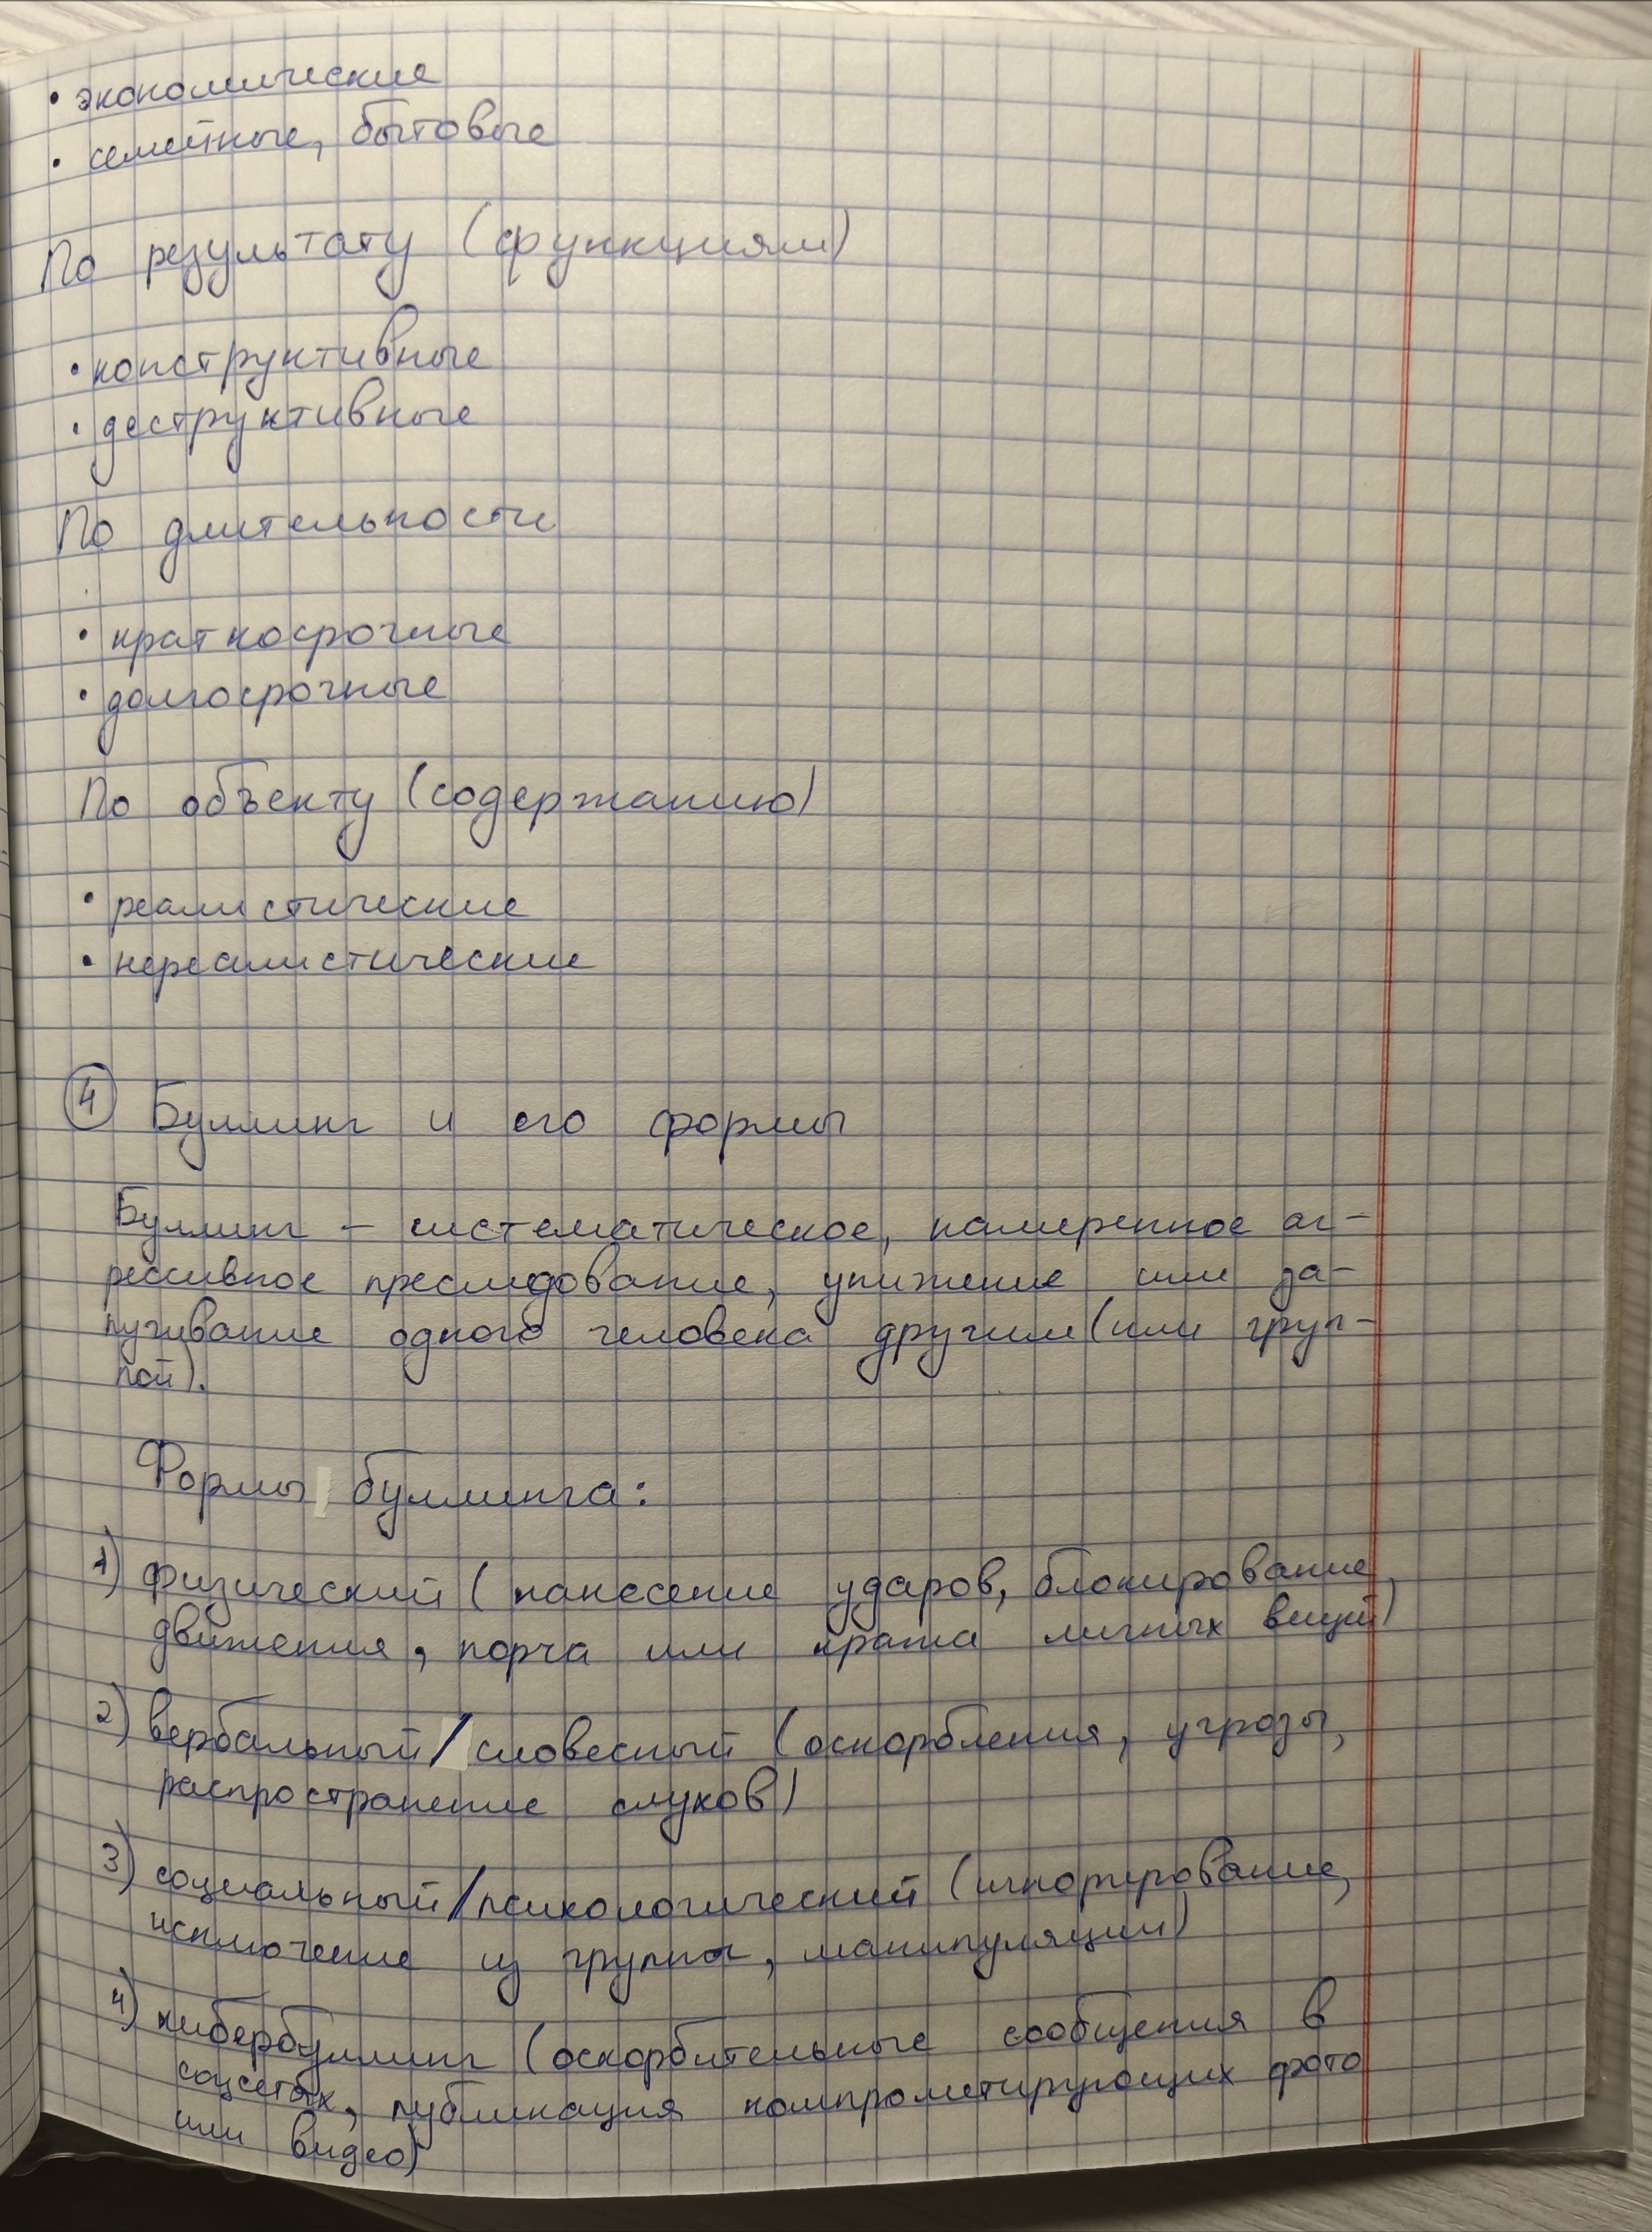 • экономические
• семейные, бытовые
По результату (функциям)
• конструктивные
• деструктивные
По длительности
• краткосрочные
• долгосрочные
По объекту (содержанию)
• реалистические
• нереалистические
4 Буллинг и его формы
Буллинг – систематическое, намеренное аг-
рессивное преследование, унижение или за-
пугивание одного человека другим (или груп-
пой).
Формы буллинга:
1) физический (нанесение ударов, блокирование
движения, порча или кража личных вещей)
2) вербальный/словесный (оскорбления, угрозы,
распространение слухов)
3) социальный/психологический (игнорирование,
исключение из группы, манипуляции)
4) кибербуллинг (оскорбительные сообщения в
соцсетях, публикация компрометирующих фото
или видео)